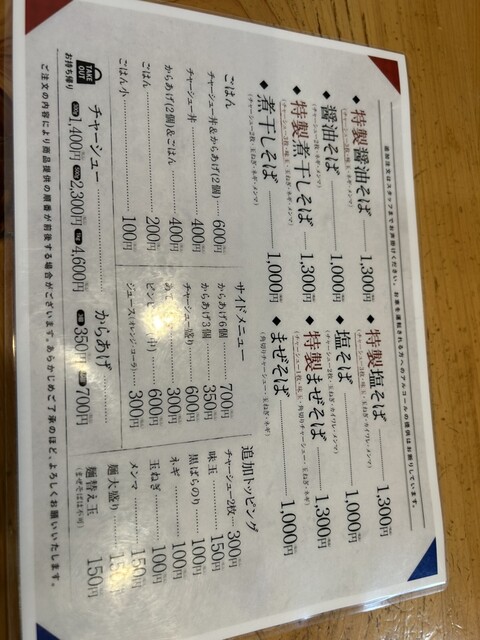 追加注文はスタッフまでお声掛けください。お車を運転される方へのアルコールの提供はお断りしています。
◆特製醤油そば 1,300円
(チャーシュー3枚・味玉・玉ねぎ・ネギ・メンマ)
◆醤油そば 1,000円
(チャーシュー2枚・玉ねぎ・ネギ・メンマ)
◆特製煮干しそば 1,300円
(チャーシュー3枚・味玉・玉ねぎ・ネギ・メンマ)
◆煮干しそば 1,000円
(チャーシュー2枚・玉ねぎ・ネギ・メンマ)
◆特製塩そば 1,300円
(チャーシュー3枚・味玉・玉ねぎ・カイワレ・メンマ)
◆塩そば 1,000円
(チャーシュー2枚・玉ねぎ・カイワレ・メンマ)
◆特製まぜそば 1,300円
(チャーシュー1枚・味玉・角切りチャーシュー・玉ねぎ・ネギ)
◆まぜそば 1,000円
(角切りチャーシュー・玉ねぎ・ネギ)
ごはん
チャーシュー丼&からあげ(2個) 600円
チャーシュー丼 400円
からあげ(2個)&ごはん 400円
ごはん 200円
ごはん小 100円
サイドメニュー
からあげ6個 700円
からあげ3個 350円
チャーシュー盛り 600円
あて 300円
ビン(中) 600円
ジュース(オレンジ・コーラ) 300円
追加トッピング
チャーシュー2枚 300円
味玉 150円
黒ばらのり 100円
ネギ 100円
玉ねぎ 100円
メンマ 150円
麺大盛り 15
麺替え玉 150円
(まぜそばは不可)
TAKE OUT
お持ち帰り
チャーシュー 1,400円 2,300円 4,600円
からあげ 350円 700円
ご注文の内容により商品提供の順番が前後する場合がございます。あらかじめご了承のほど、よろしくお願いします。